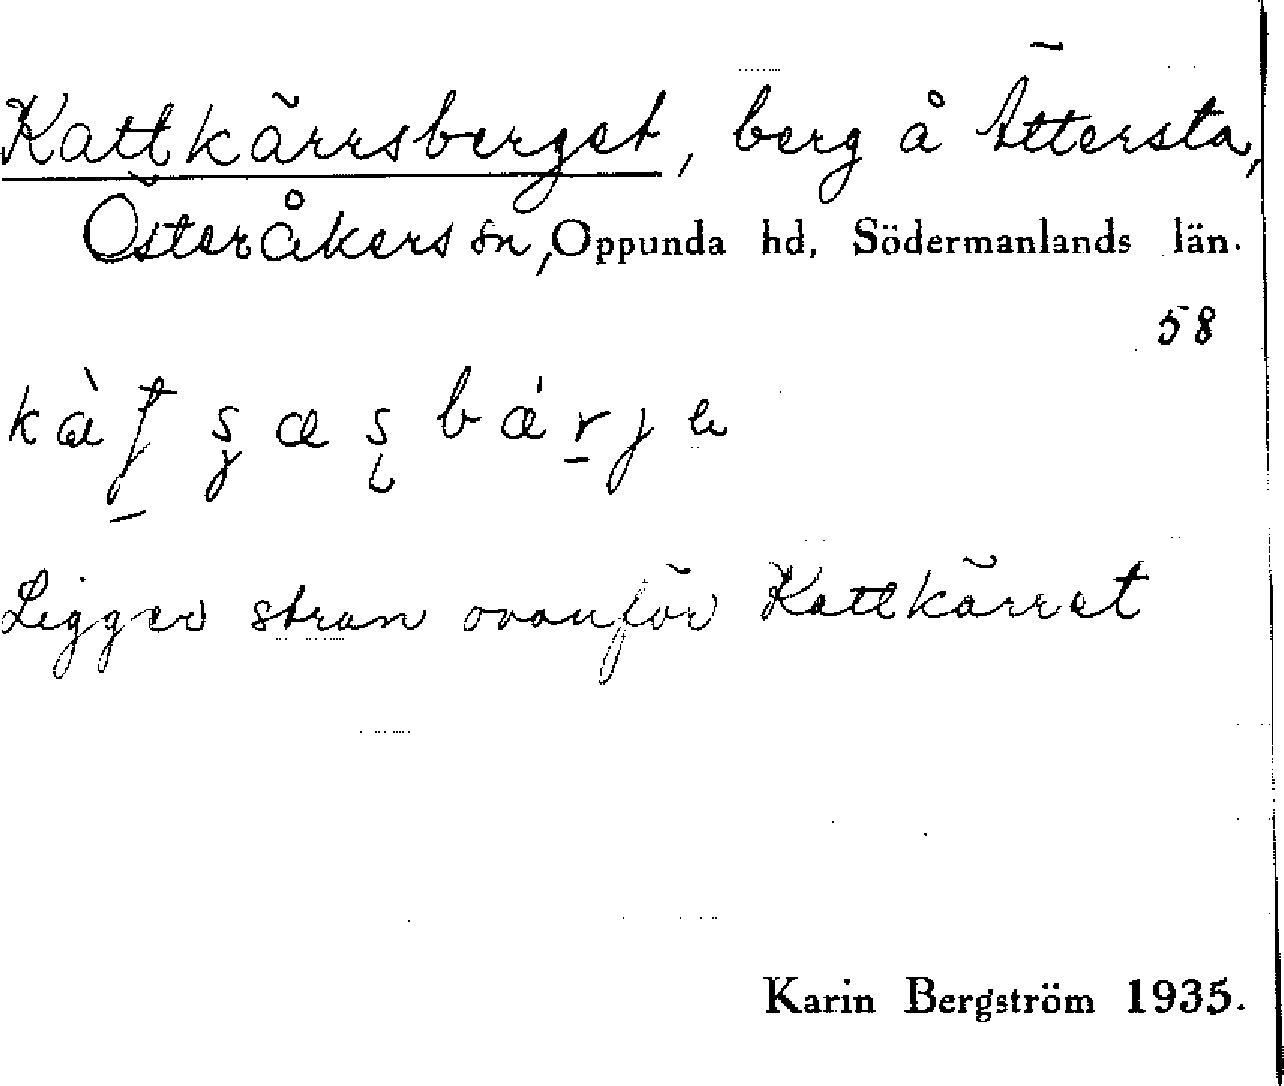 Kattkärrsberget, berg å Ättersta,
Österåkers sn, Oppunda hd, Södermanlands län.
58
Ligger strax ovanför Kattkärret
Karin Bergström 1935.